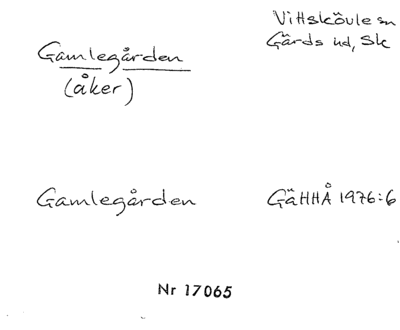 Vittskövle sn
Gärds hd, Sk
Gamlegården
(åker)
Gamlegården
GäHHÅ 1976:6
Nr 17065